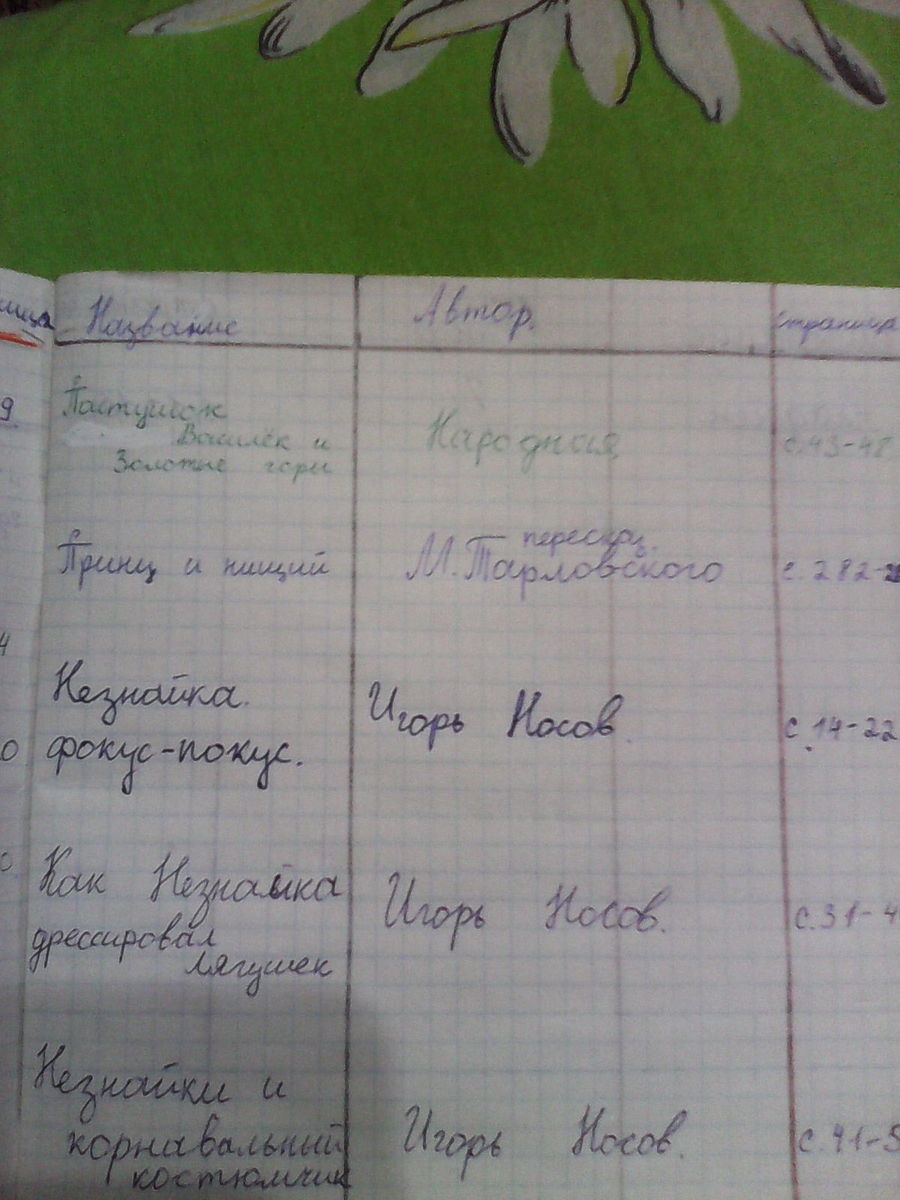 Название Автор. страница
9.
Пастушок Народная с.43-48
Василёк и
Золотые горы
пересказ.
Принц и нищий М.Тарловского с. 282-
4
Незнайка. Игорь Носов. с.14-22
0 фокус-покус.
Как Незнайка Игорь Носов. с.31-4
дрессировал
лягушек
Незнайки и
корнавальный Игорь Носов. с.41-5
костюмчик